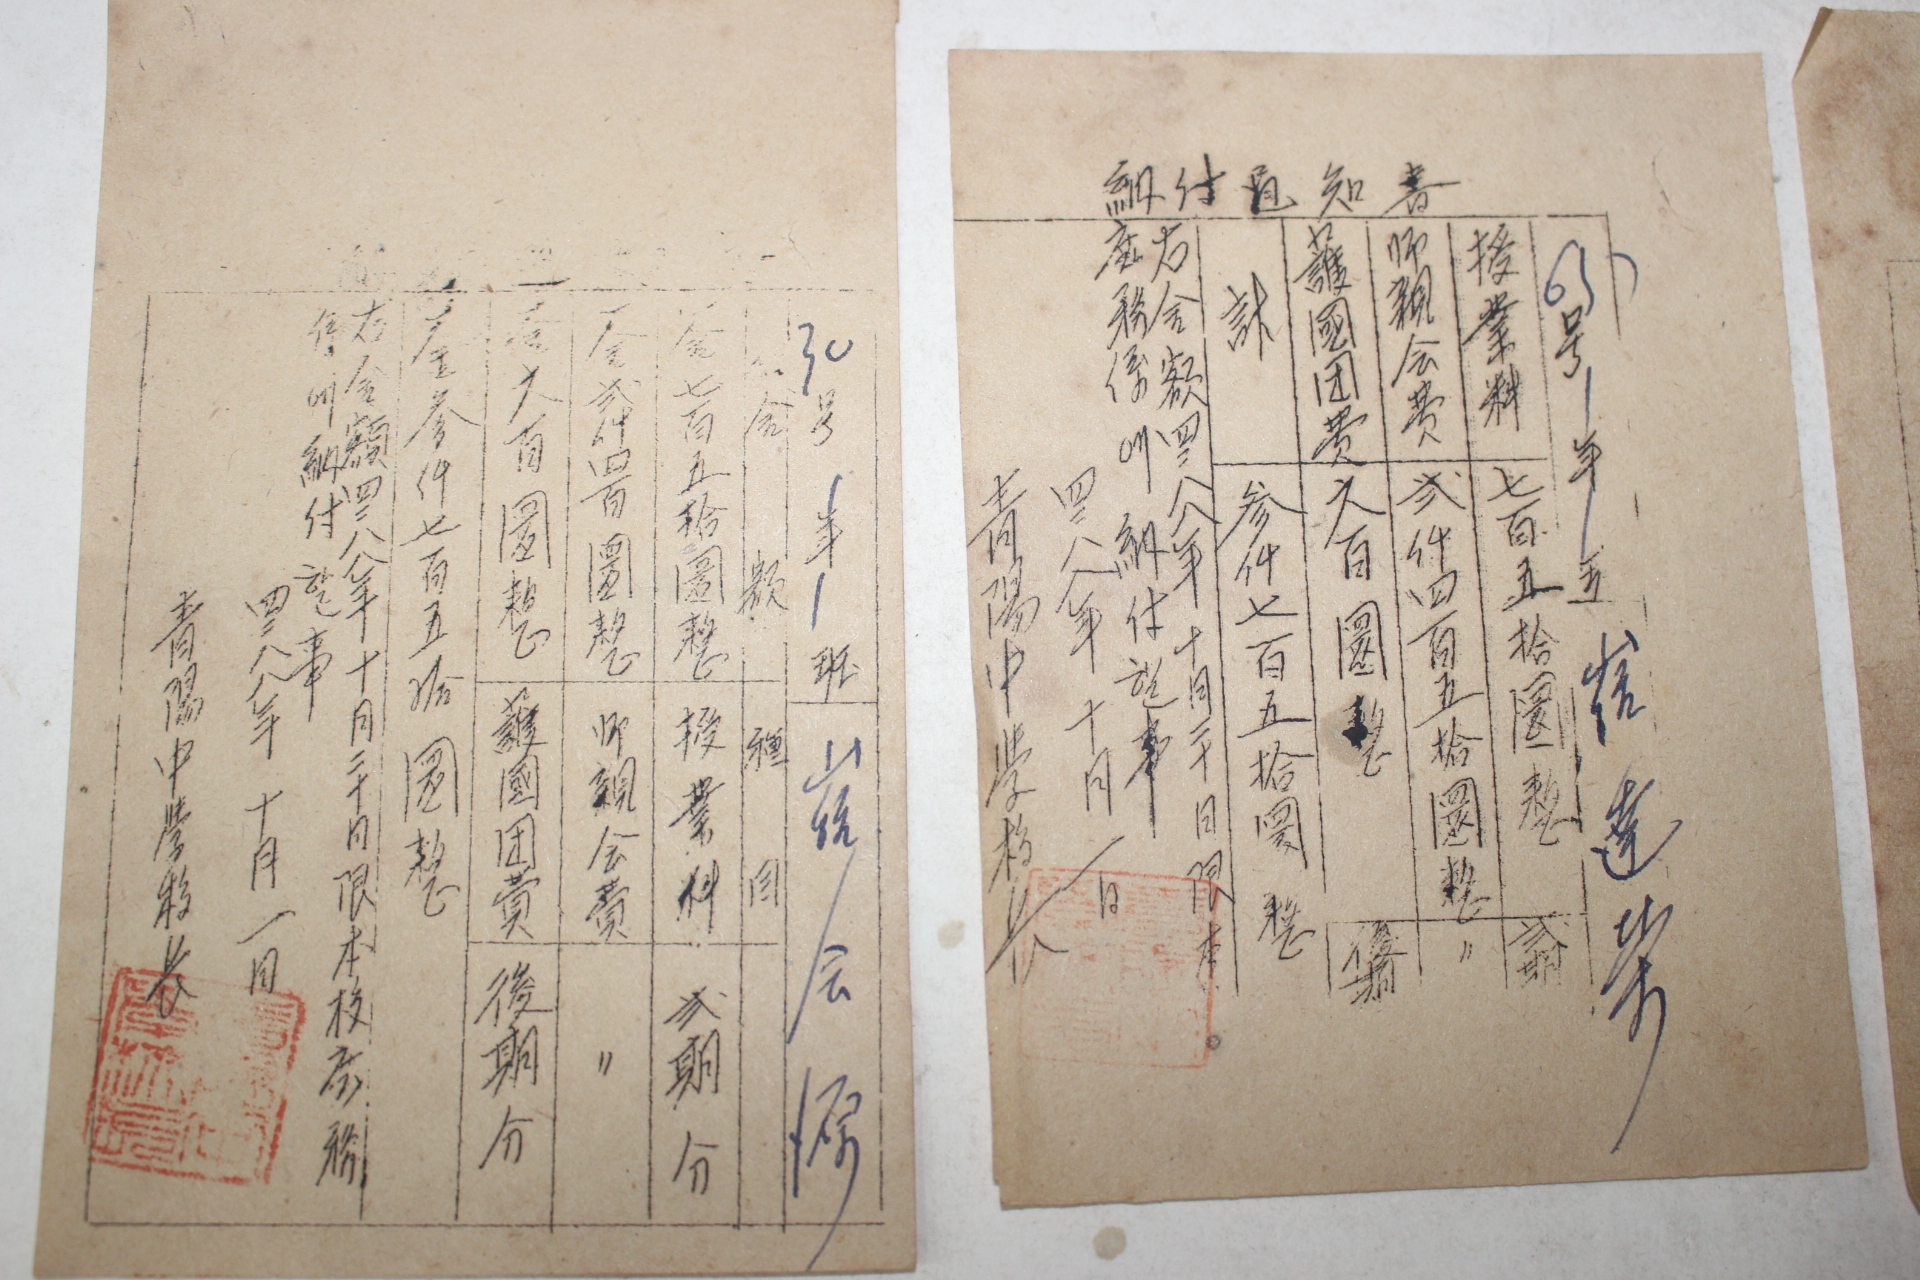 納付通知書
63号 1年1 五 崔達
授業料 七百五拾圜整 弐期
師親会費 弐仟四百五拾圜整 〃
護國团費 六百圜整 後期
計 参仟七百五拾圜整
右金額四二八八年十月二十日限本
庶務係에納付할事
四二八八年十月一日
青陽中学校長
30号 1年1班 崔会源
金額 種目
金七百五拾圜整 授業料 弐期分
金弐仟四百圜整 師親会費 〃
金六百圜整 護國团費 後期分
金参仟七百五拾圜整
右金額四二八八年十月二十日限本校庶務
係에納付할事
四二八八年十月一日
青陽中学校長